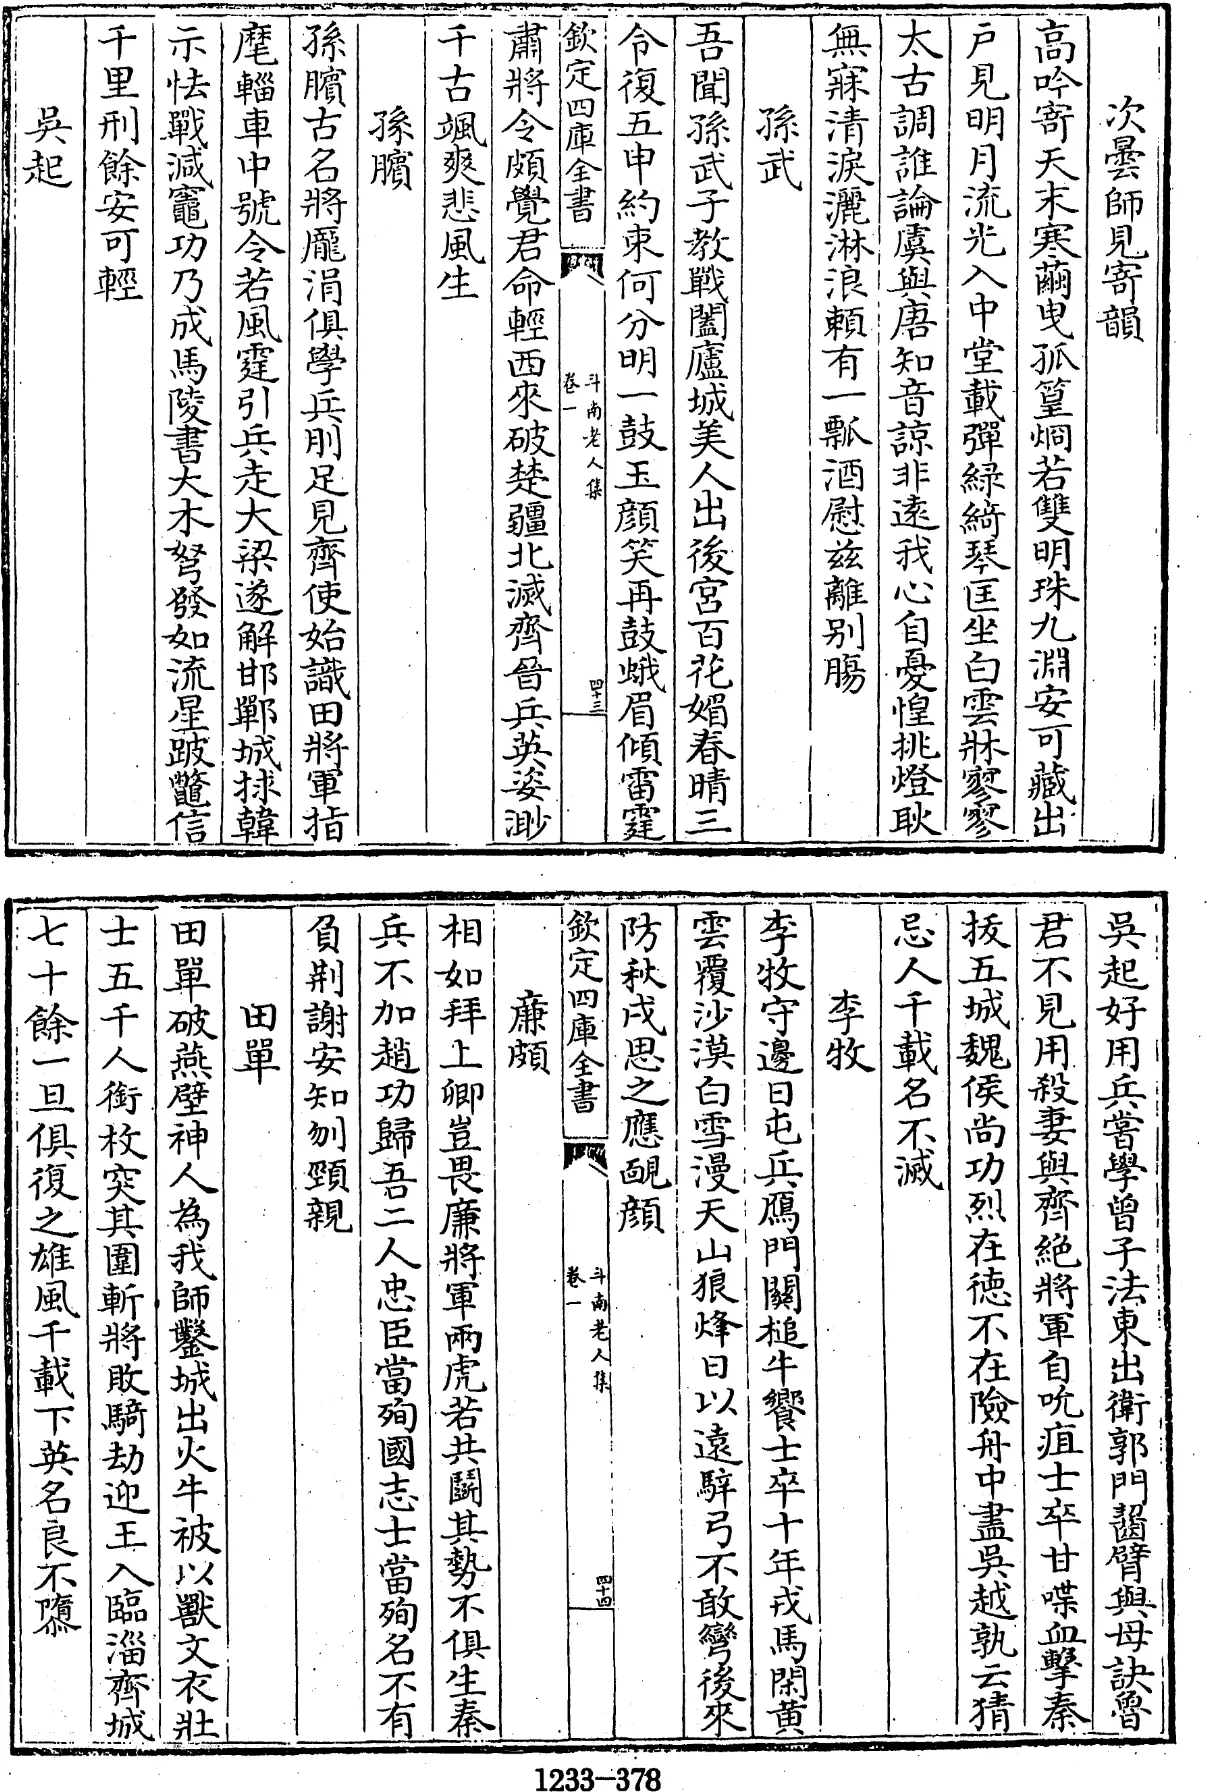 次曇師見寄韻
高吟寄天末寒繭曳孤篁炯若雙明珠九淵安可藏出
戸見明月流光入中堂載彈緑綺琴匡坐白雲牀寥寥
太古調誰論虞與唐知音諒非遠我心自憂惶挑燈耿
無寐清淚灑淋浪頼有一瓢酒慰兹離别腸
孫武
吾聞孫武子教戰闔廬城美人出後宮百花媚春晴三
令復五申約束何分明一鼓玉顔笑再鼓蛾眉傾雷霆
欽定四庫全書
斗南老人集
卷一
四十三
肅將令頗覺君命輕西來破楚疆北滅齊晉兵英姿渺
千古颯爽悲風生
孫臏
孫臏古名將龎涓俱學兵刖足見齊使始識田將軍指
麾輜車中號令若風霆引兵走大梁遂解邯鄲城捄韓
示怯戰減竈功乃成馬陵書大木弩發如流星跛鼈信
千里刑餘安可輕
吳起
吳起好用兵嘗學曾子法東出衛郭門齧臂與母訣魯
君不見用殺妻與齊絶將軍自吮疽士卒甘喋血擊秦
拔五城魏侯尚功烈在徳不在險舟中盡吳越孰云猜
忌人千載名不滅
李牧
李牧守邊日屯兵鴈門闗槌牛饗士卒十年戎馬閑黄
雲覆沙漠白雪漫天山狼烽日以遠騂弓不敢彎後來
防秋戍思之應靦顔
欽定四庫全書
斗南老人集
卷一
四十四
廉頗
相如拜上卿豈畏廉將軍兩虎若共鬭其勢不俱生秦
兵不加趙功歸吾二人忠臣當殉國志士當殉名不有
負荆謝安知刎頸親
田單
田單破燕壁神人為我師鑿城出火牛被以獸文衣壯
士五千人銜枚突其圍斬將敗騎劫迎王入臨淄齊城
七十餘一旦俱復之雄風千載下英名良不隳
1233—378